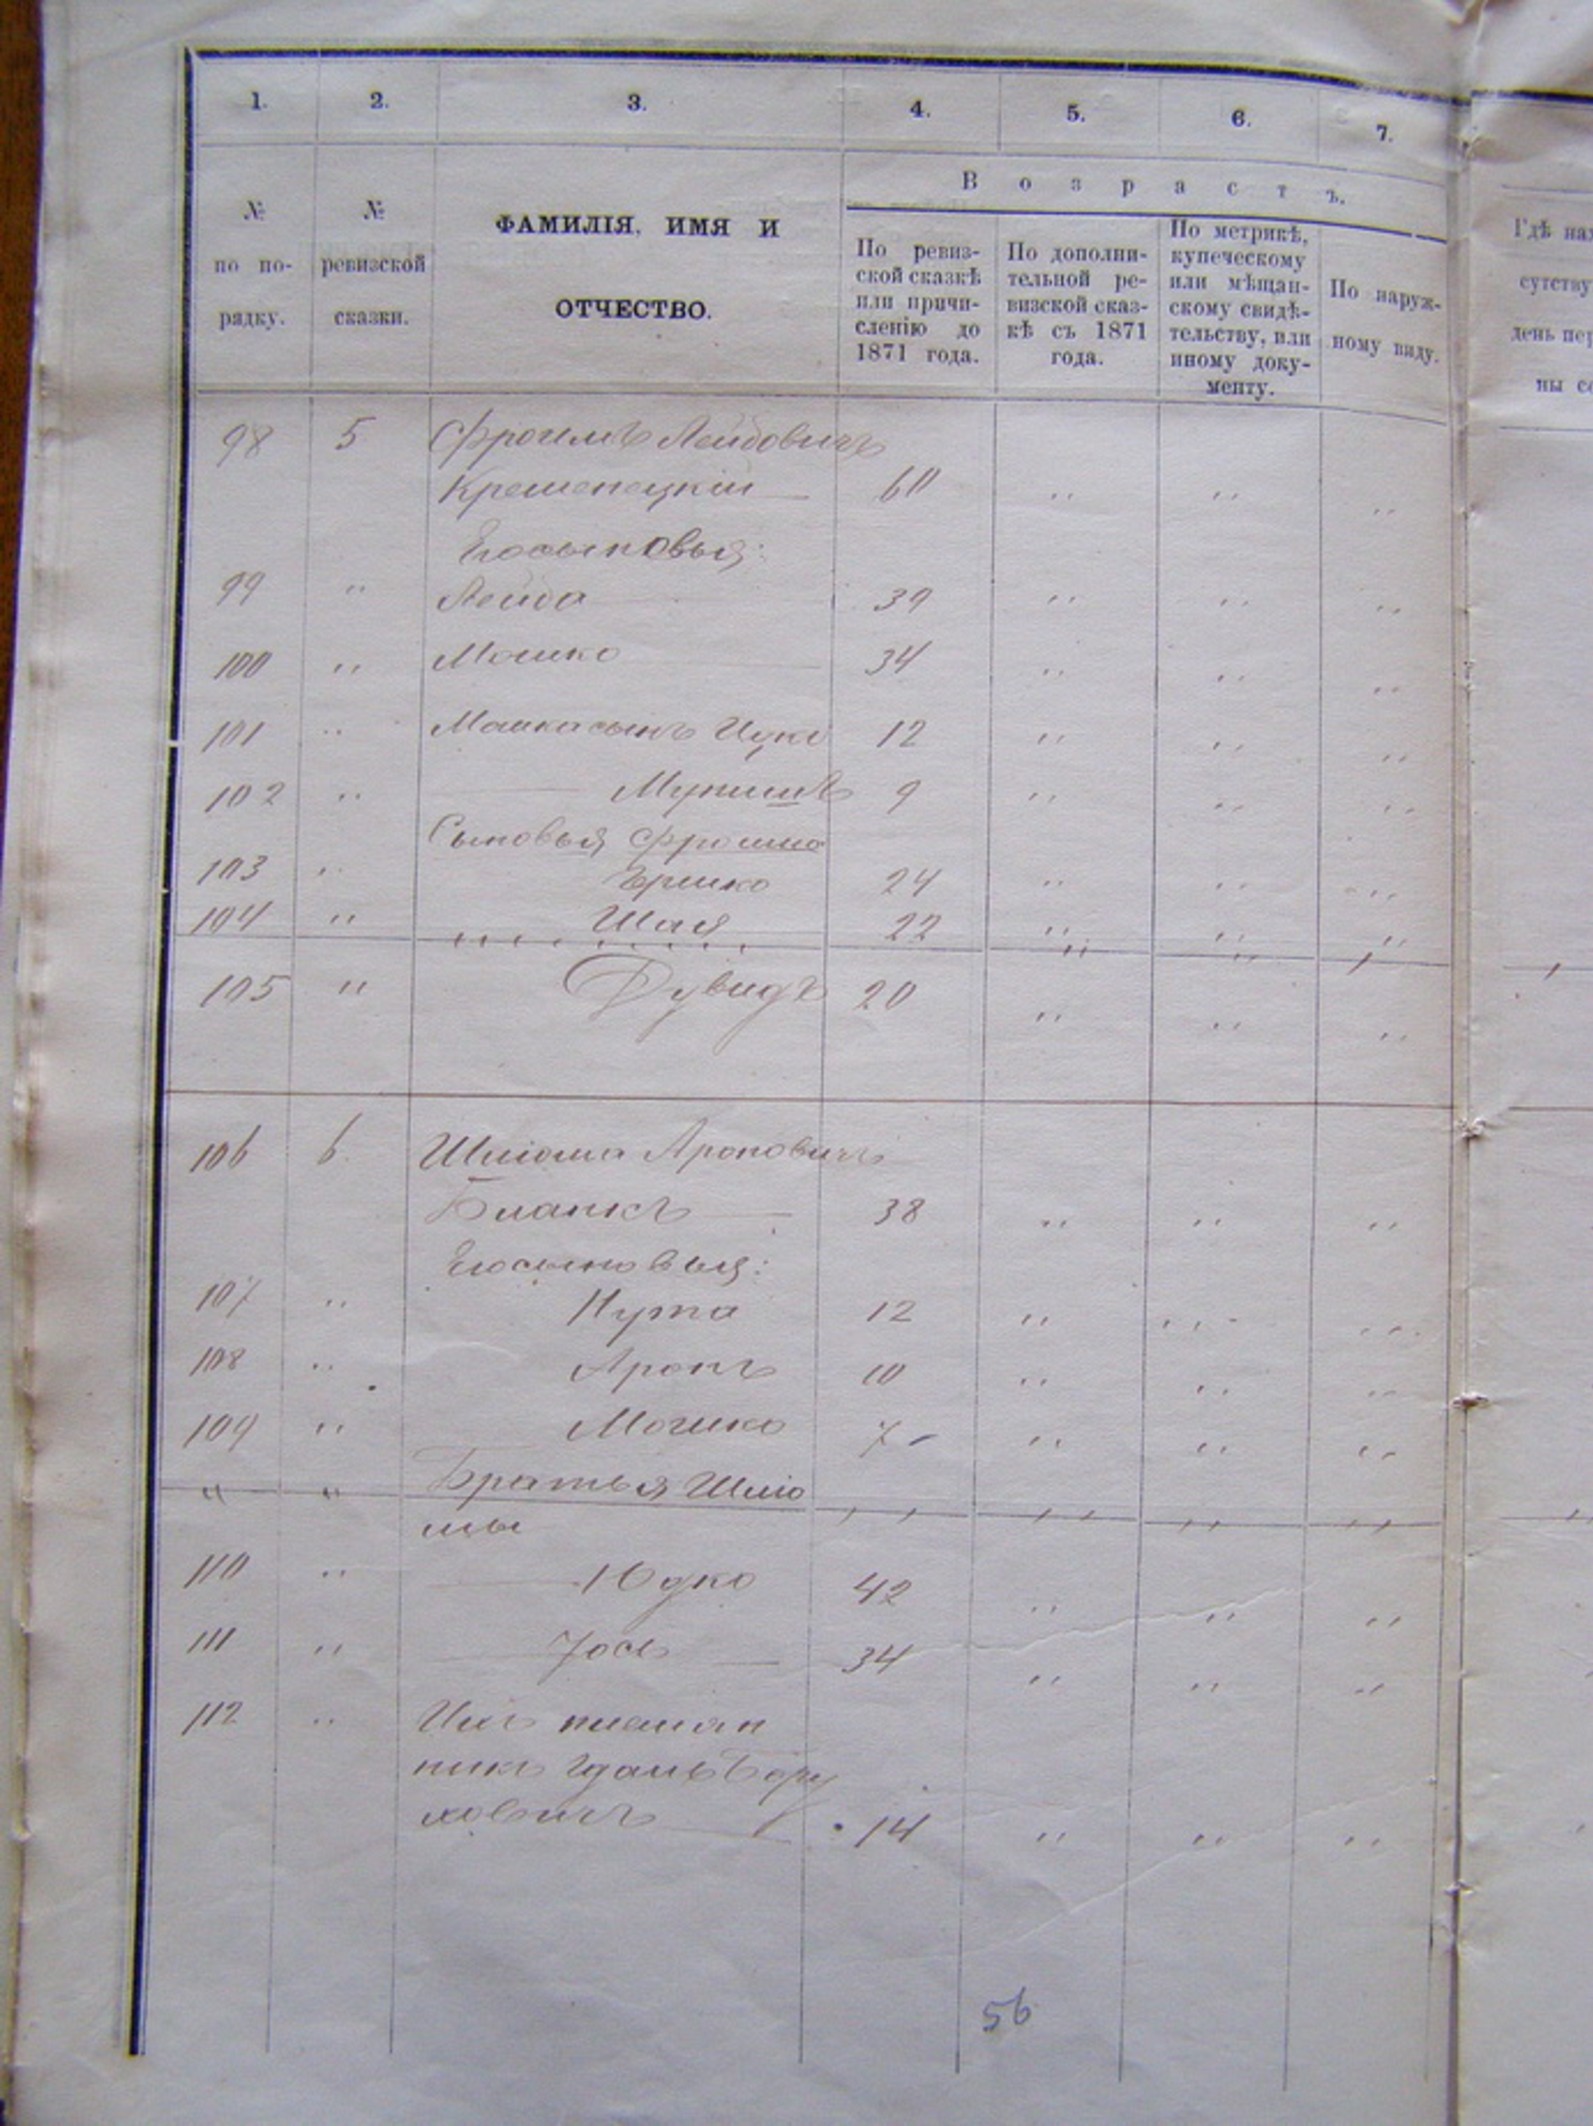 1. 2. 3. 4. 5. 6. 7.
№ по по-рядку.
№ ревизской сказки.
ФАМИЛІЯ, ИМЯ И
ОТЧЕСТВО.
В о з р а с т ъ.
По ревиз-
ской сказкѣ
или причи-
сленію до
1871 года.
По дополни-
тельной ре-
визской сказ-
кѣ съ 1871
года.
По метрикѣ,
купеческому
или мѣщан-
скому свидѣ-
тельству, или
иному доку-
менту.
По наруж-
ному виду.
Гдѣ нах
сутству
день пер
ны со
98 5 Фроимъ Лейбовичъ
Кременецкій 60 " " "
Его сыновья:
99 " Лейба 39 " " "
100 " Мошко 34 " " "
101 " Мошка сынъ Ицко 12 " " "
102 " 9 " " "
Сыновья Фроима
103 " Гершко 24 " " "
104 " Шая 22 " " "
105 " Дувидъ 20 " " "
106 6. Шлiома Ароновичъ
Бланкъ 38 " " "
Его сыновья:
107 " Нута 12 " " "
108 " Аронъ 10 " " "
109 " Мошко 7 " " "
" " Братья Шлiо " " " "
мы
110 " Юдко 42 " " "
111 " Iось 34 " " "
112 " Ихъ племян
никъ Гдаль Бору
ховичъ 14 " " "
56